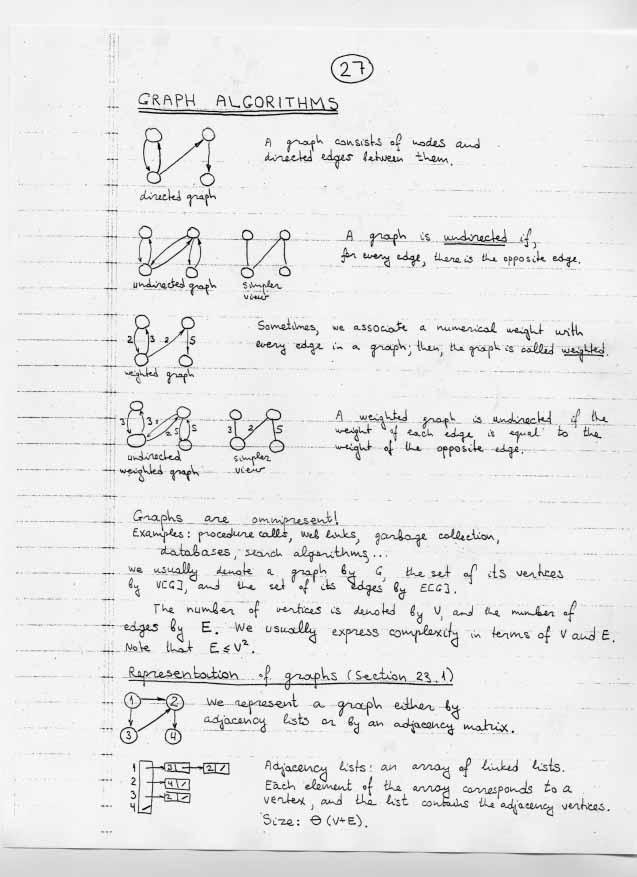 27
GRAPH ALGORITHMS
A graph consists of nodes and
directed edges between them.
directed graph
A graph is undirected if,
for every edge, there is the opposite edge.
undirected graph
simpler
view
Sometimes, we associate a numerical weight with
every edge in a graph; then, the graph is called weighted.
2 3 2 5
weighted graph
A weighted graph is undirected if the
weight of each edge is equal to the
weight of the opposite edge.
3 3 2 5 5
3 2 5
undirected
weighted graph
simpler
view
Graphs are omnipresent!
Examples: procedure calls, web links, garbage collection,
databases, search algorithms,...
We usually denote a graph by G, the set of its vertices
by V[G], and the set of its edges by E[G].
The number of vertices is denoted by V, and the number of
edges by E. We usually express complexity in terms of V and E.
Note that E ≤ V².
Representation of graphs (Section 23.1)
1 2
3 4
We represent a graph either by
adjacency lists or by an adjacency matrix.
1 3 2 /
2 4 /
3 2 /
4 /
Adjacency lists: an array of linked lists.
Each element of the array corresponds to a
vertex, and the list contains the adjacency vertices.
Size: Θ (V+E).